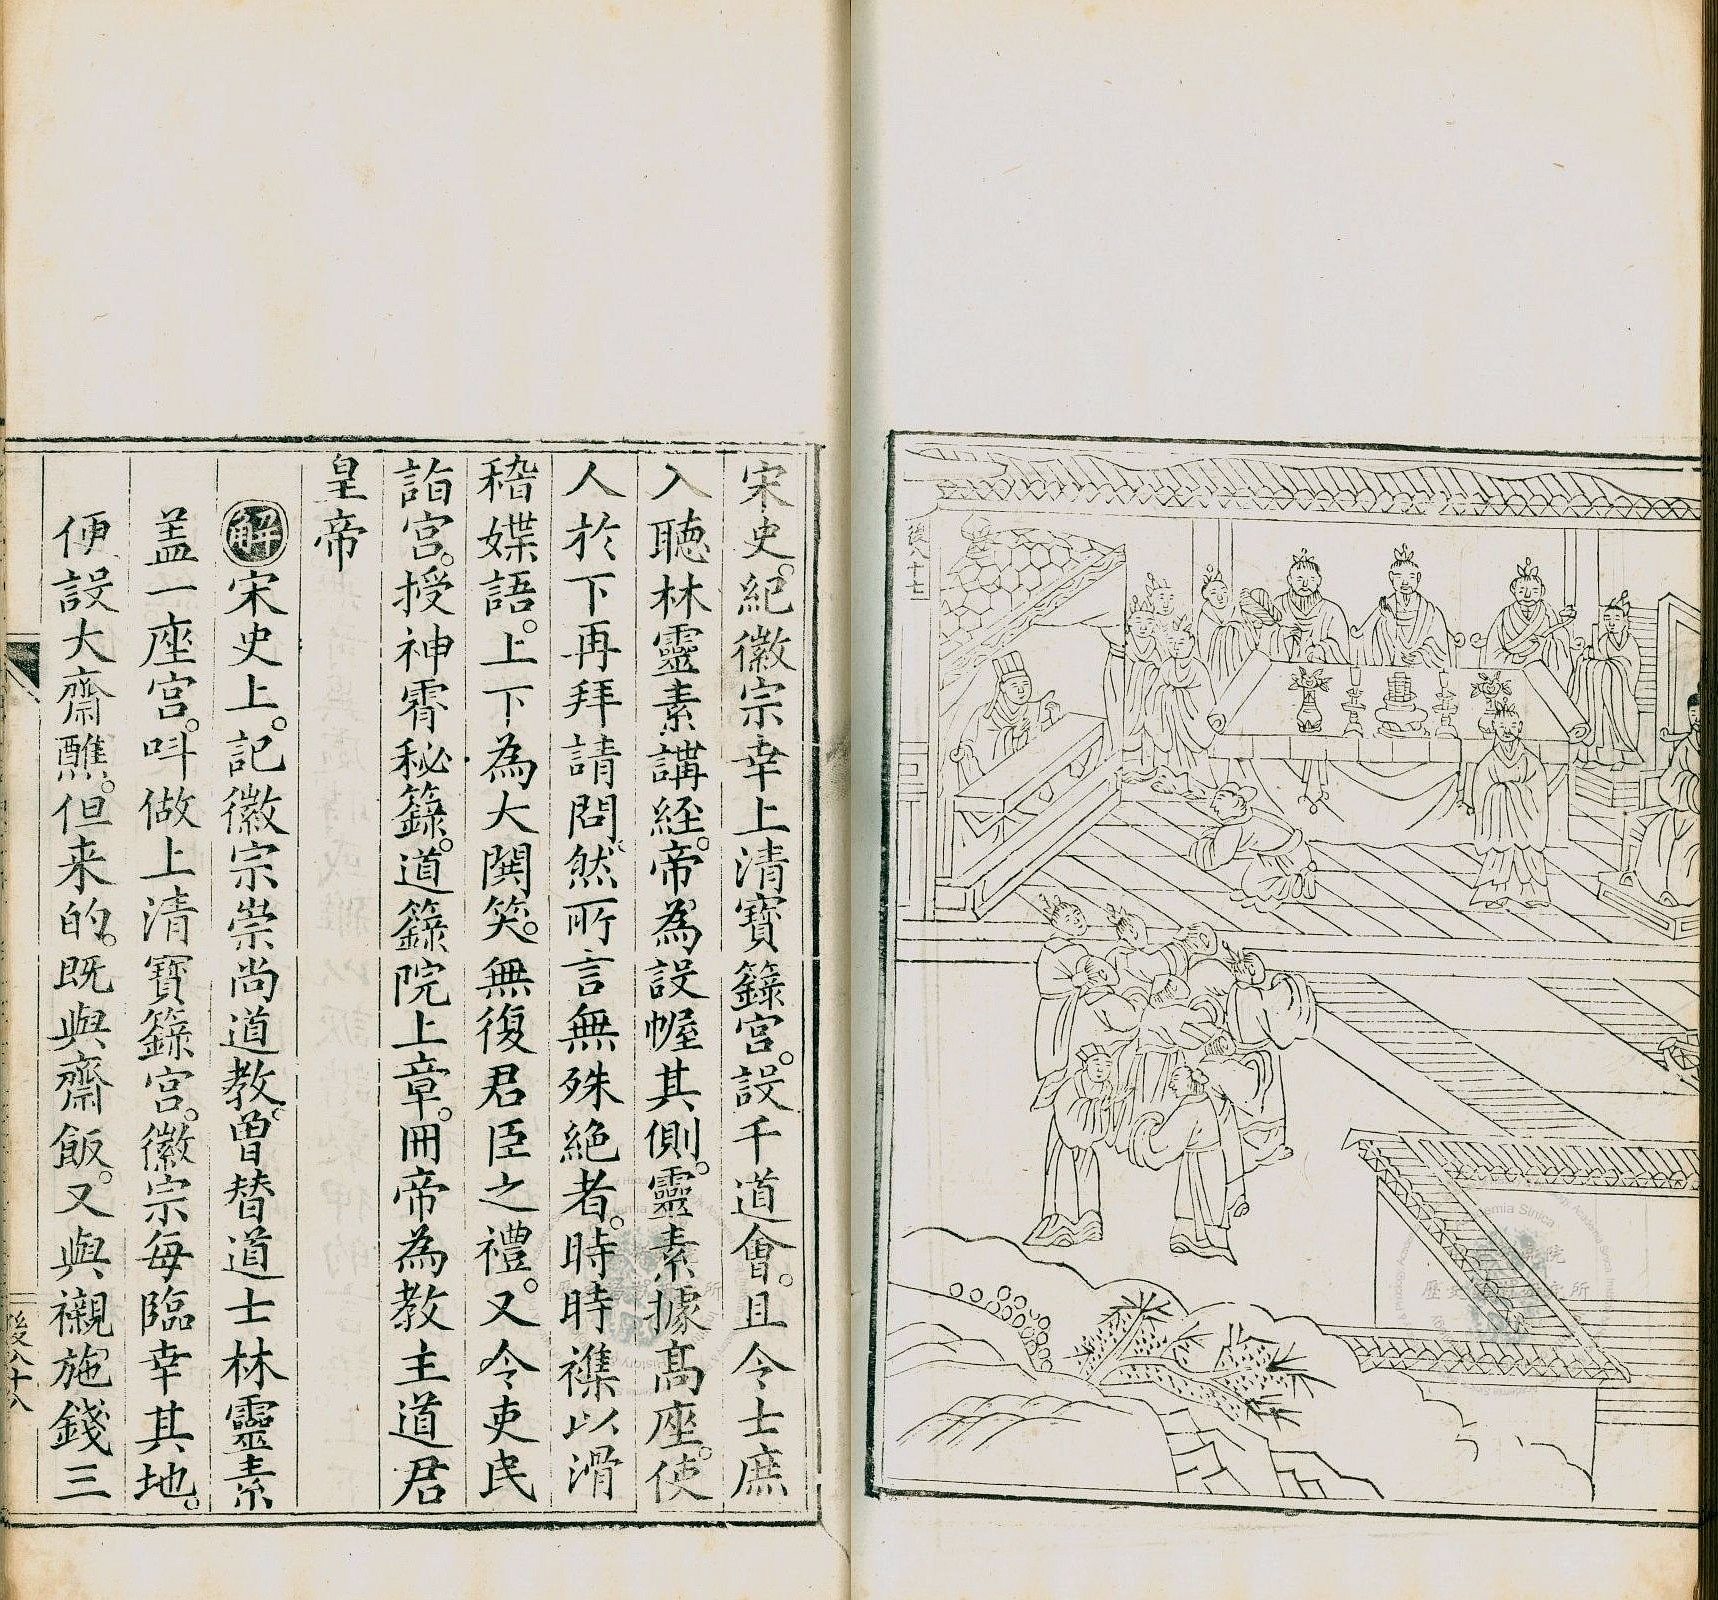 後八十七
宋史。紀徽宗幸上清寶籙宮。設千道會。且令士庶
入聽林靈素講經。帝為設幄其側。靈素據高座。使
人於下再拜請問。然所言無殊絕者。時時襍以滑
稽媟語。上下為大閧笑。無復君臣之禮。又令吏民
詣宮。授神霄秘籙。道籙院上章。冊帝為教主道君
皇帝
解宋史上。記徽宗崇尚道教。曽替道士林靈素
盖一座宮。呌做上清寶籙宮。徽宗每臨幸其地。
便設大齋醮。但来的。既與齋飯。又與襯施錢三
後八十八